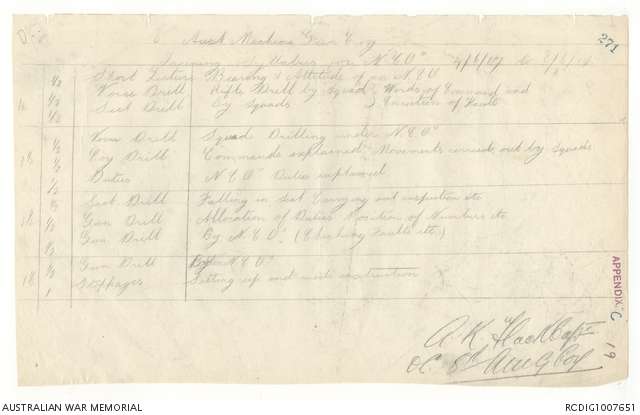 271
Aust Machine Gun Coy
Training Syllabus for N.C.O's 4/6/17 to 8/6/17
1/2 Short Lecture Bearing & Attitude of an N.C.O
1/2 Voice Drill Rifle Drill by Squad Words of Command and
1/2 Sect Drill by Squads Execution of Faults
1/2 Voice Drill Squads Drilling under N.C.O's
18 1/2 Coy Drill Commands explained, Movements carried out by Squads
1/2 Duties N.C.O's Duties explained
1/2 Sect Drill Falling in Sect Carrying out inspection etc
18 1/2 Gun Drill Allocation of Duties Position of Numbers etc
1/2 Gun Drill By N.C.O's (Checking Faults etc.)
1/2 Gun Drill By N.C.O's
18 1 Stoppages Setting up and instruction
APPENDIX C 19
A. K. Capt
O.C. Coy
AUSTRALIAN WAR MEMORIAL
RCDIG1007651